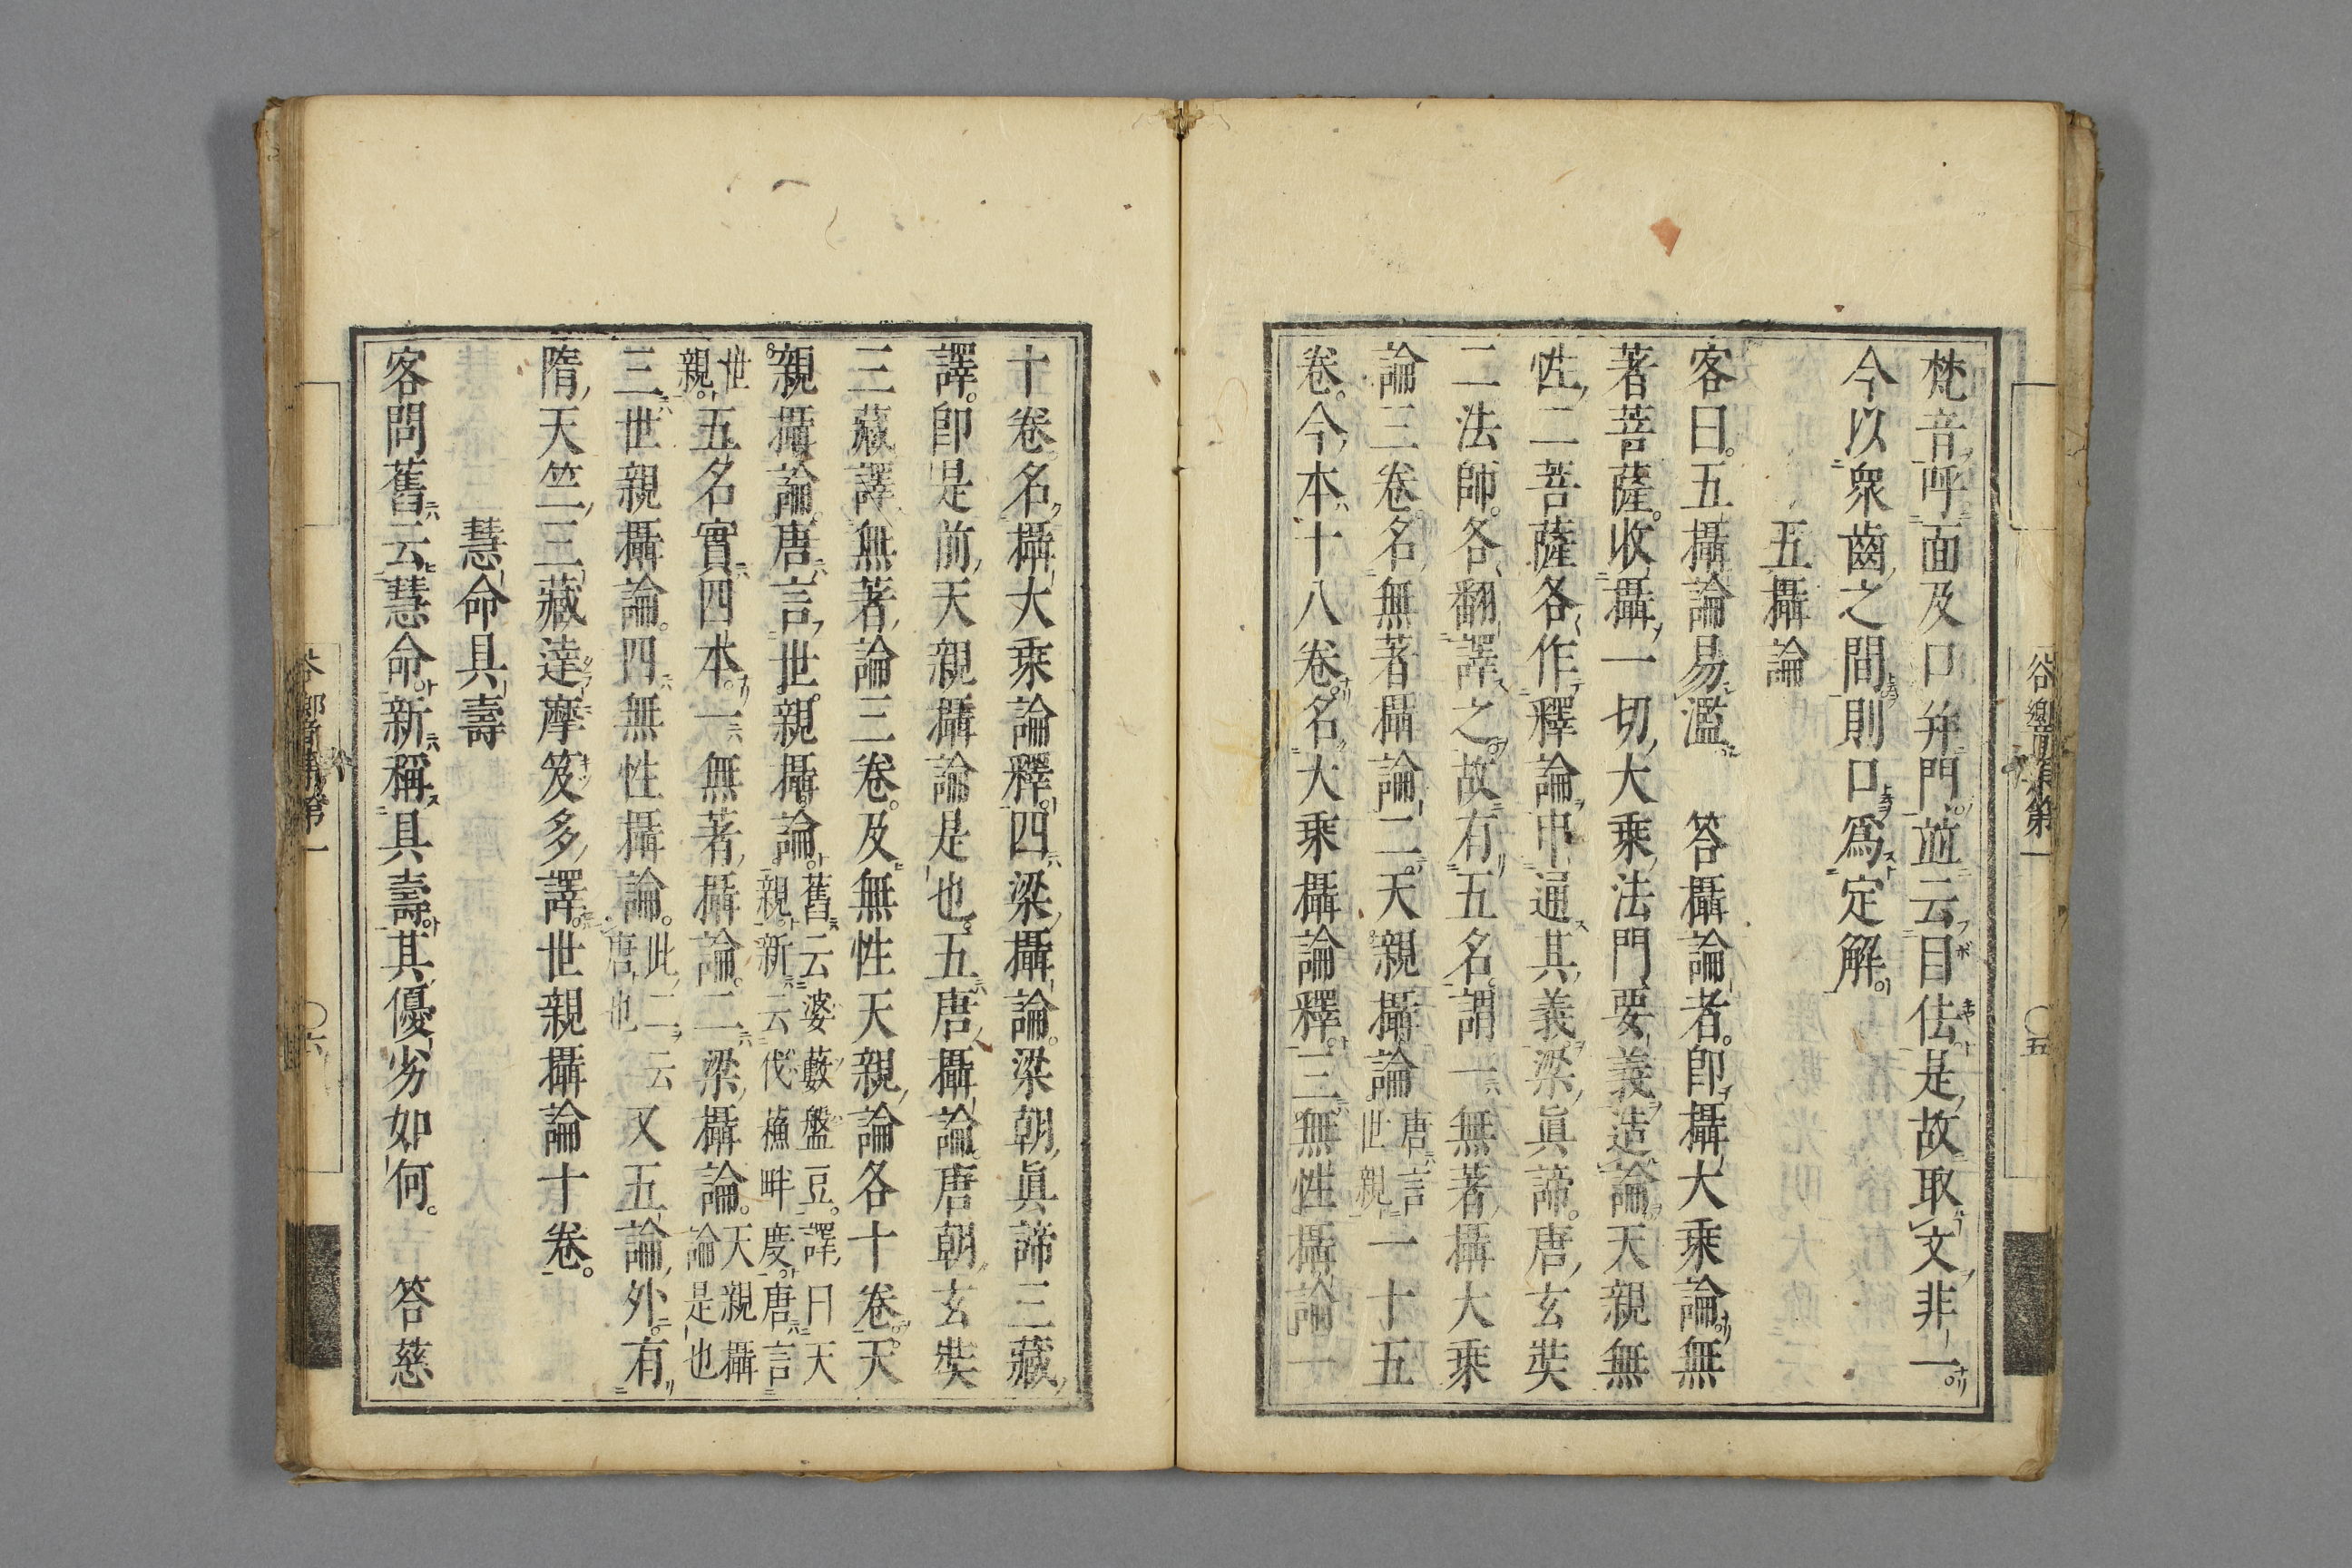 梵音呼面及口弁門並云目佉是故取文非一
今以衆齒之間則口爲定解
五攝論
客曰五攝論易濫　答攝論者卽攝大乘論無
著菩薩收攝一切大乘法門要義造論天親無
性二菩薩各作釋論申通其義梁眞諦唐玄奘
二法師各翻譯之故有五名謂一無著攝大乘
論三卷名無著攝論二天親攝論唐言世親一十五
卷今本十八卷名大乘攝論釋三無性攝論一
十卷名攝大乘論釋四梁攝論梁朝眞諦三藏
譯卽是前天親攝論是也五唐攝論唐朝玄奘
三藏譯無著論三卷及無性天親論各十卷天
親攝論唐言世親攝論舊云婆藪盤豆譯曰天親新云伐蘓畔度唐言世親
五名實四本一無著攝論二梁攝論天親攝論是也
三世親攝論四無性攝論此二云唐也又五論外有
隋天竺三藏達摩笈多譯世親攝論十卷
慧命具壽
客問舊云慧命新稱具壽其優劣如何　答慈
谷響集第一
○五
○六